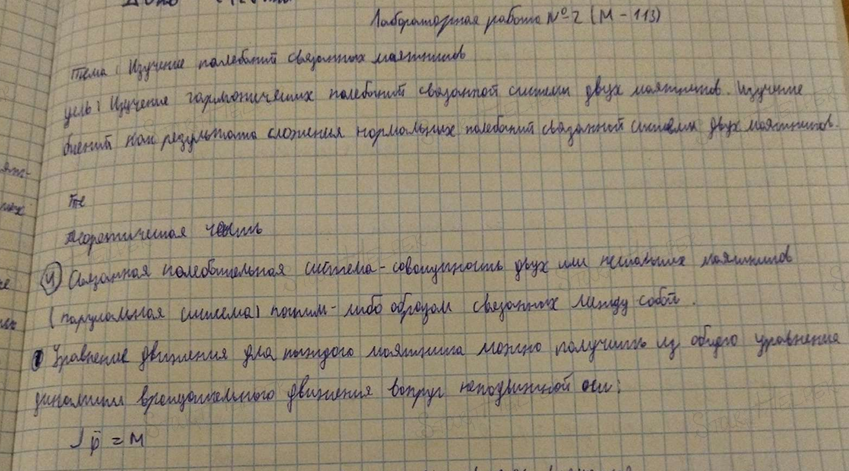 Лабораторная работа №2 (М-113)
Тема: Изучение колебаний связанных маятников
цель: Изучение гармонических колебаний связанной системы двух маятников. Изучение
биений как результата сложения нормальных колебаний связанной системы двух маятников.
Те
Теоретическая часть
Связанная колебательная система - совокупность двух или нескольких маятников
(парциальная система) каким-либо образом связанных между собой.
Уравнение движения для каждого маятника можно получить из общего уравнения
динамики вращательного движения вокруг неподвижной оси:
J φ̈ = M